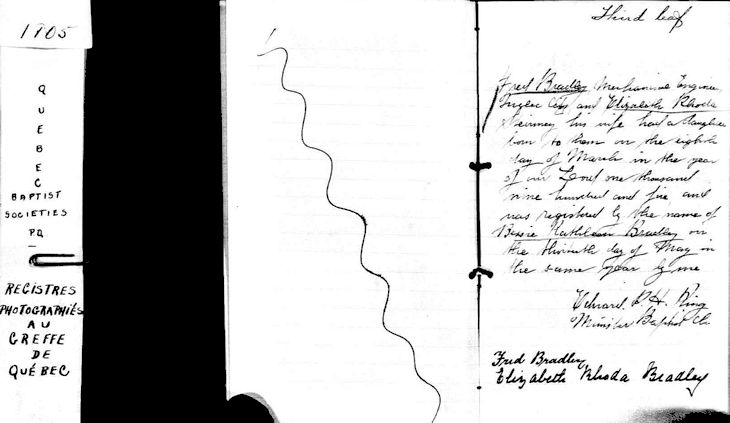 1905
QUEBEC
BAPTIST
SOCIETIES
PQ
REGISTRES
PHOTOGRAPHIÉS
AU
GREFFE
DE
QUÉBEC
Third leaf
Fred Bradley Mechanical Engineer
City and Elizabeth Rhoda
his wife had a daughter
born to them on the eighth
day of March in the year
of our Lord one thousand
nine hundred and five and
was registered by the name of
Bessie Kathleen Bradley on
the day of May in
the same year by me
Edward P. H. King
Minister Baptist Ch.
Fred Bradley
Elizabeth Rhoda Bradley